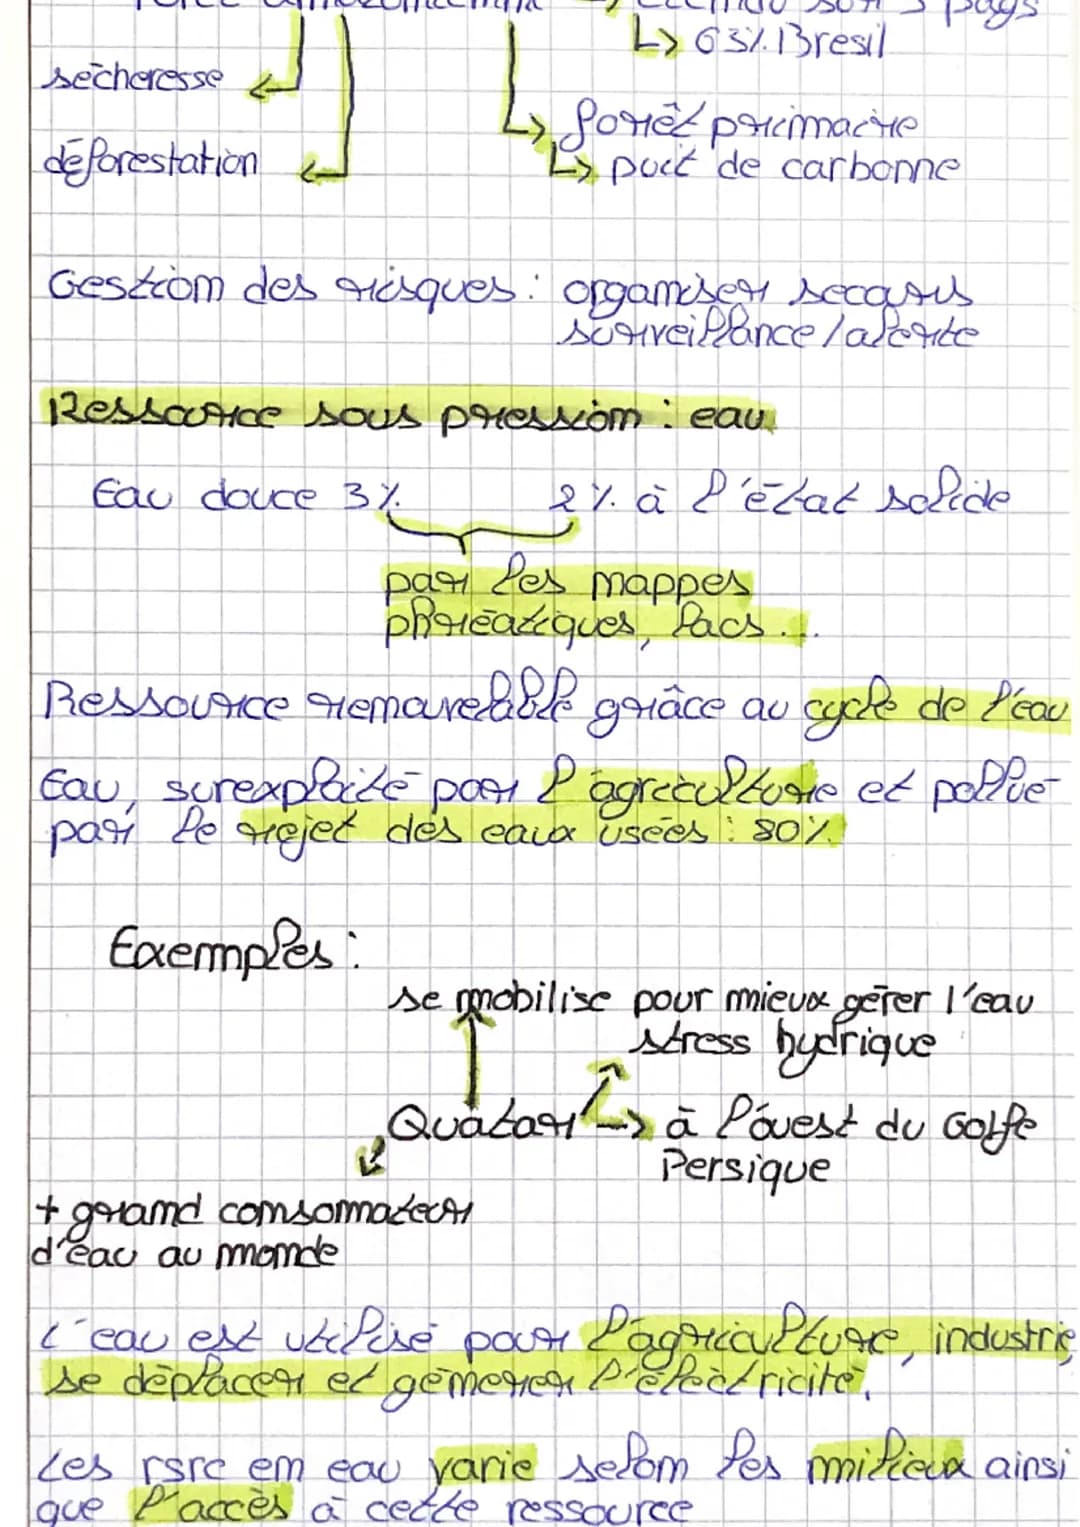 pays
↳ 63% Bresil
sècheresse
↳ forêt primaire
déforestation
↳ puit de carbonne
Gestion des risques : organiser secours
surveillance / alerte
Ressource sous pression : eau
Eau douce 3% 2% à l'état solide
par les nappes
phréatiques, lacs...
Ressource renouvelable grâce au cycle de l'eau
Eau, surexploité par l'agriculture et pollué
par le rejet des eaux usées : 80%
Exemples :
se mobilise pour mieux gérer l'eau
stress hydrique
Quatar → à l'ouest du Golfe
Persique
+ grand consommateur
d'eau au monde
L'eau est utilisé pour l'agriculture, industrie,
se déplacer et génerer l'électricité.
Les rsrc en eau varie selon les milieux ainsi
que l'accès à cette ressource